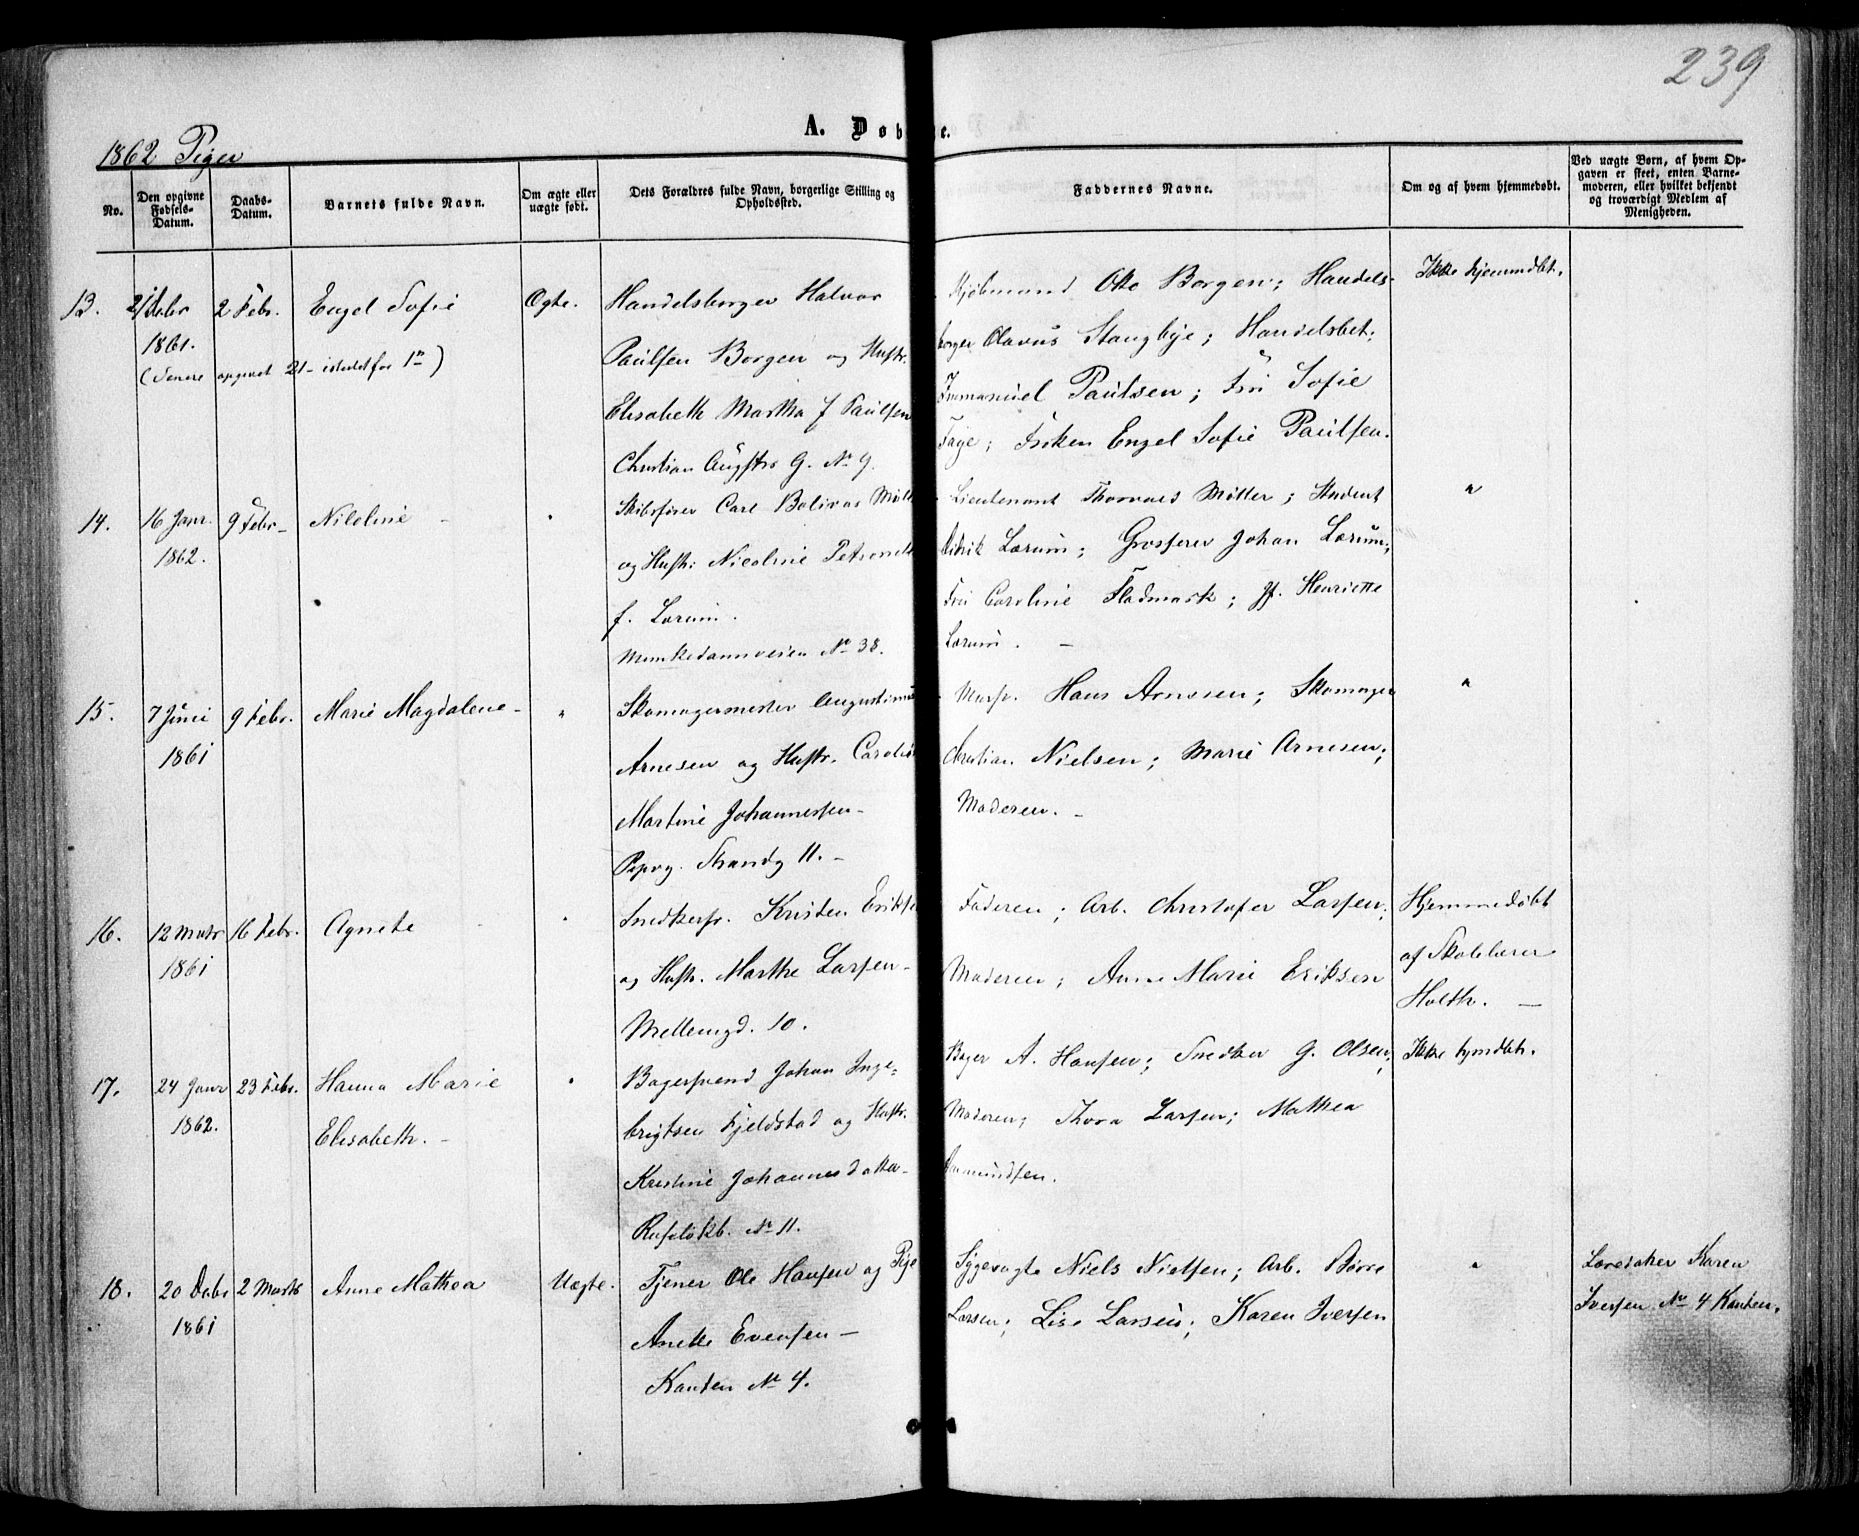 239
A. Døb e.
1862 Piger
No.
Den opgivne Fødsels-Datum.
Daabs-Datum.
Barnets fulde Navn.
Om ægte eller uægte født.
Dets Forældres fulde Navn, borgerlige Stilling og Opholdssted.
Faddernes Navne.
Om og af hvem hjemmedøbt.
Ved uægte Børn, af hvem Opgaven er skeet, enten Barnemoderen, eller hvilket bekjendt og troværdigt Medlem af Menigheden.
13.
21 Debr
1861.
(Senere opgivet 21 istedetfor 1ste)
2 Febr.
Engel Sofie
Ægte.
Handelsborger Halvor
Paulsen Borgen og Hustr.
Elisabeth Martha f Paulsen
Christian Augsts G. No 9.
Kjøbmand Otto Borgen; Handels-
borger Olavus Stangbye; Handelsbet.
Immanuel Paulsen; Fru Sofie
Faye; Frøken Engel Sofie Paulsen.
Ikke hjemmdbt.
14.
16 Janr.
1862.
9 Febr.
Nicoline
"
Skibsfører Carl Bolivar Møll
og Hustr: Nicoline Petronelle
f. Lørum.
Munkedamsveien No 38.
Lieutenant Thorvald Møller; Student
Didrik Lørum; Grosserer Johan Lørum;
Fru Caroline Fladmark; Jf. Henriette
Lørum. —
"
15.
7 Juni
1861
9 Febr.
Marie Magdalene -
"
Skomagermester Augustinus
Arnesen og Hustr. Caroline
Martine Johannessen -
Pipvg. Strandg 11. -
Hans Arnesen; Skomager
Christian Nielsen; Marie Arnesen;
Moderen. -
"
16.
12 Marts
1861
16 Febr.
Agnete
"
Snedkersv. Kristen Eriksen
og Hustr. Marthe Larsen -
Mellemgd. 10.
Faderen; Arb. Christofer Larsen;
Moderen; Anne Marie Eriksen
Hjemmedøbt
af Skolelærer
Holth. —
17.
24 Janr
1862.
23 Febr.
Hanna Marie
Elisabeth. -
"
Bagersvend Johan Inge-
brigtsen Fjeldstad og Hustr.
Kristine Johannesdatter -
Rufsløkb. No 11.
Bager A. Hansen; Snedker G. Olsen;
Moderen; Thora Larsen; Mathea
Aamundsen.
Ikke hjmdbt.
18.
20 Debr
1861
2 Marts
Anne Mathea
Uægte.
Tjener Ole Hansen og Pige
Anethe Evensen —
Kanten No 4.
Sygevogte Niels Nielsen; Arb. Børre
Larsen; Lise Larsen; Karen Iversen
"
Karen
Iversen No 4 Kanten.